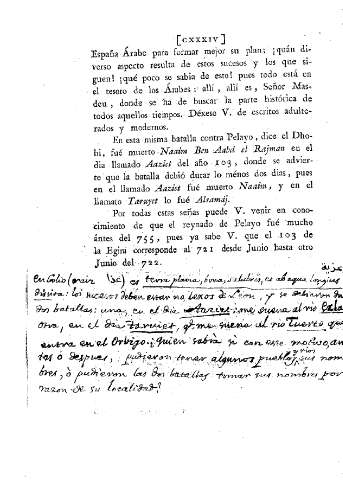 [CXXXIV]
España Árabe para formar mejor su plan; ¡quán di-
verso aspecto resulta de estos sucesos y los que si-
guen! ¡qué poco se sabia de esto! pues todo está en
el tesoro de los Árabes: allí, allí es, Señor Mas-
deu, donde se ha de buscar la parte histórica de
todos aquellos tiempos. Déxese V. de escritos adulte-
rados y modernos.
En esta misma batalla contra Pelayo, dice el Dho-
bi, fué muerto Naaim Ben Aabd el Rajman en el
dia llamado Aaziet del año 103, donde se advier-
te que la batalla debió durar lo ménos dos dias, pues
en el llamado Aaziet fué muerto Naaim, y en el
llamato Taruyet lo fué Alramaj.
Por todas estas señas puede V. venir en cono-
cimiento de que el reynado de Pelayo fué mucho
ántes del 755, pues ya sabe V. que el 103 de
la Egira corresponde al 721 desde Junio hasta otro
Junio del 722.
en Golio es terra plana, bona, salubris, ab aqua longius
dissita: los sucesos deben estar no lexos de Leon, y se dieron en
dos batallas: una, en el dia Aaziet: me suena al rio Exla
Otra, en el dia taruiet, q.e me suena al rio Tuerto, que
entra en el Orbigo. ¿Quien sabria si con ese motivo an-
tes ó despues, pudieron tener algunos pueblos, sus nom-
bres, ó pudieron las dos batallas tomar sus nombres por
razon de su localidad?